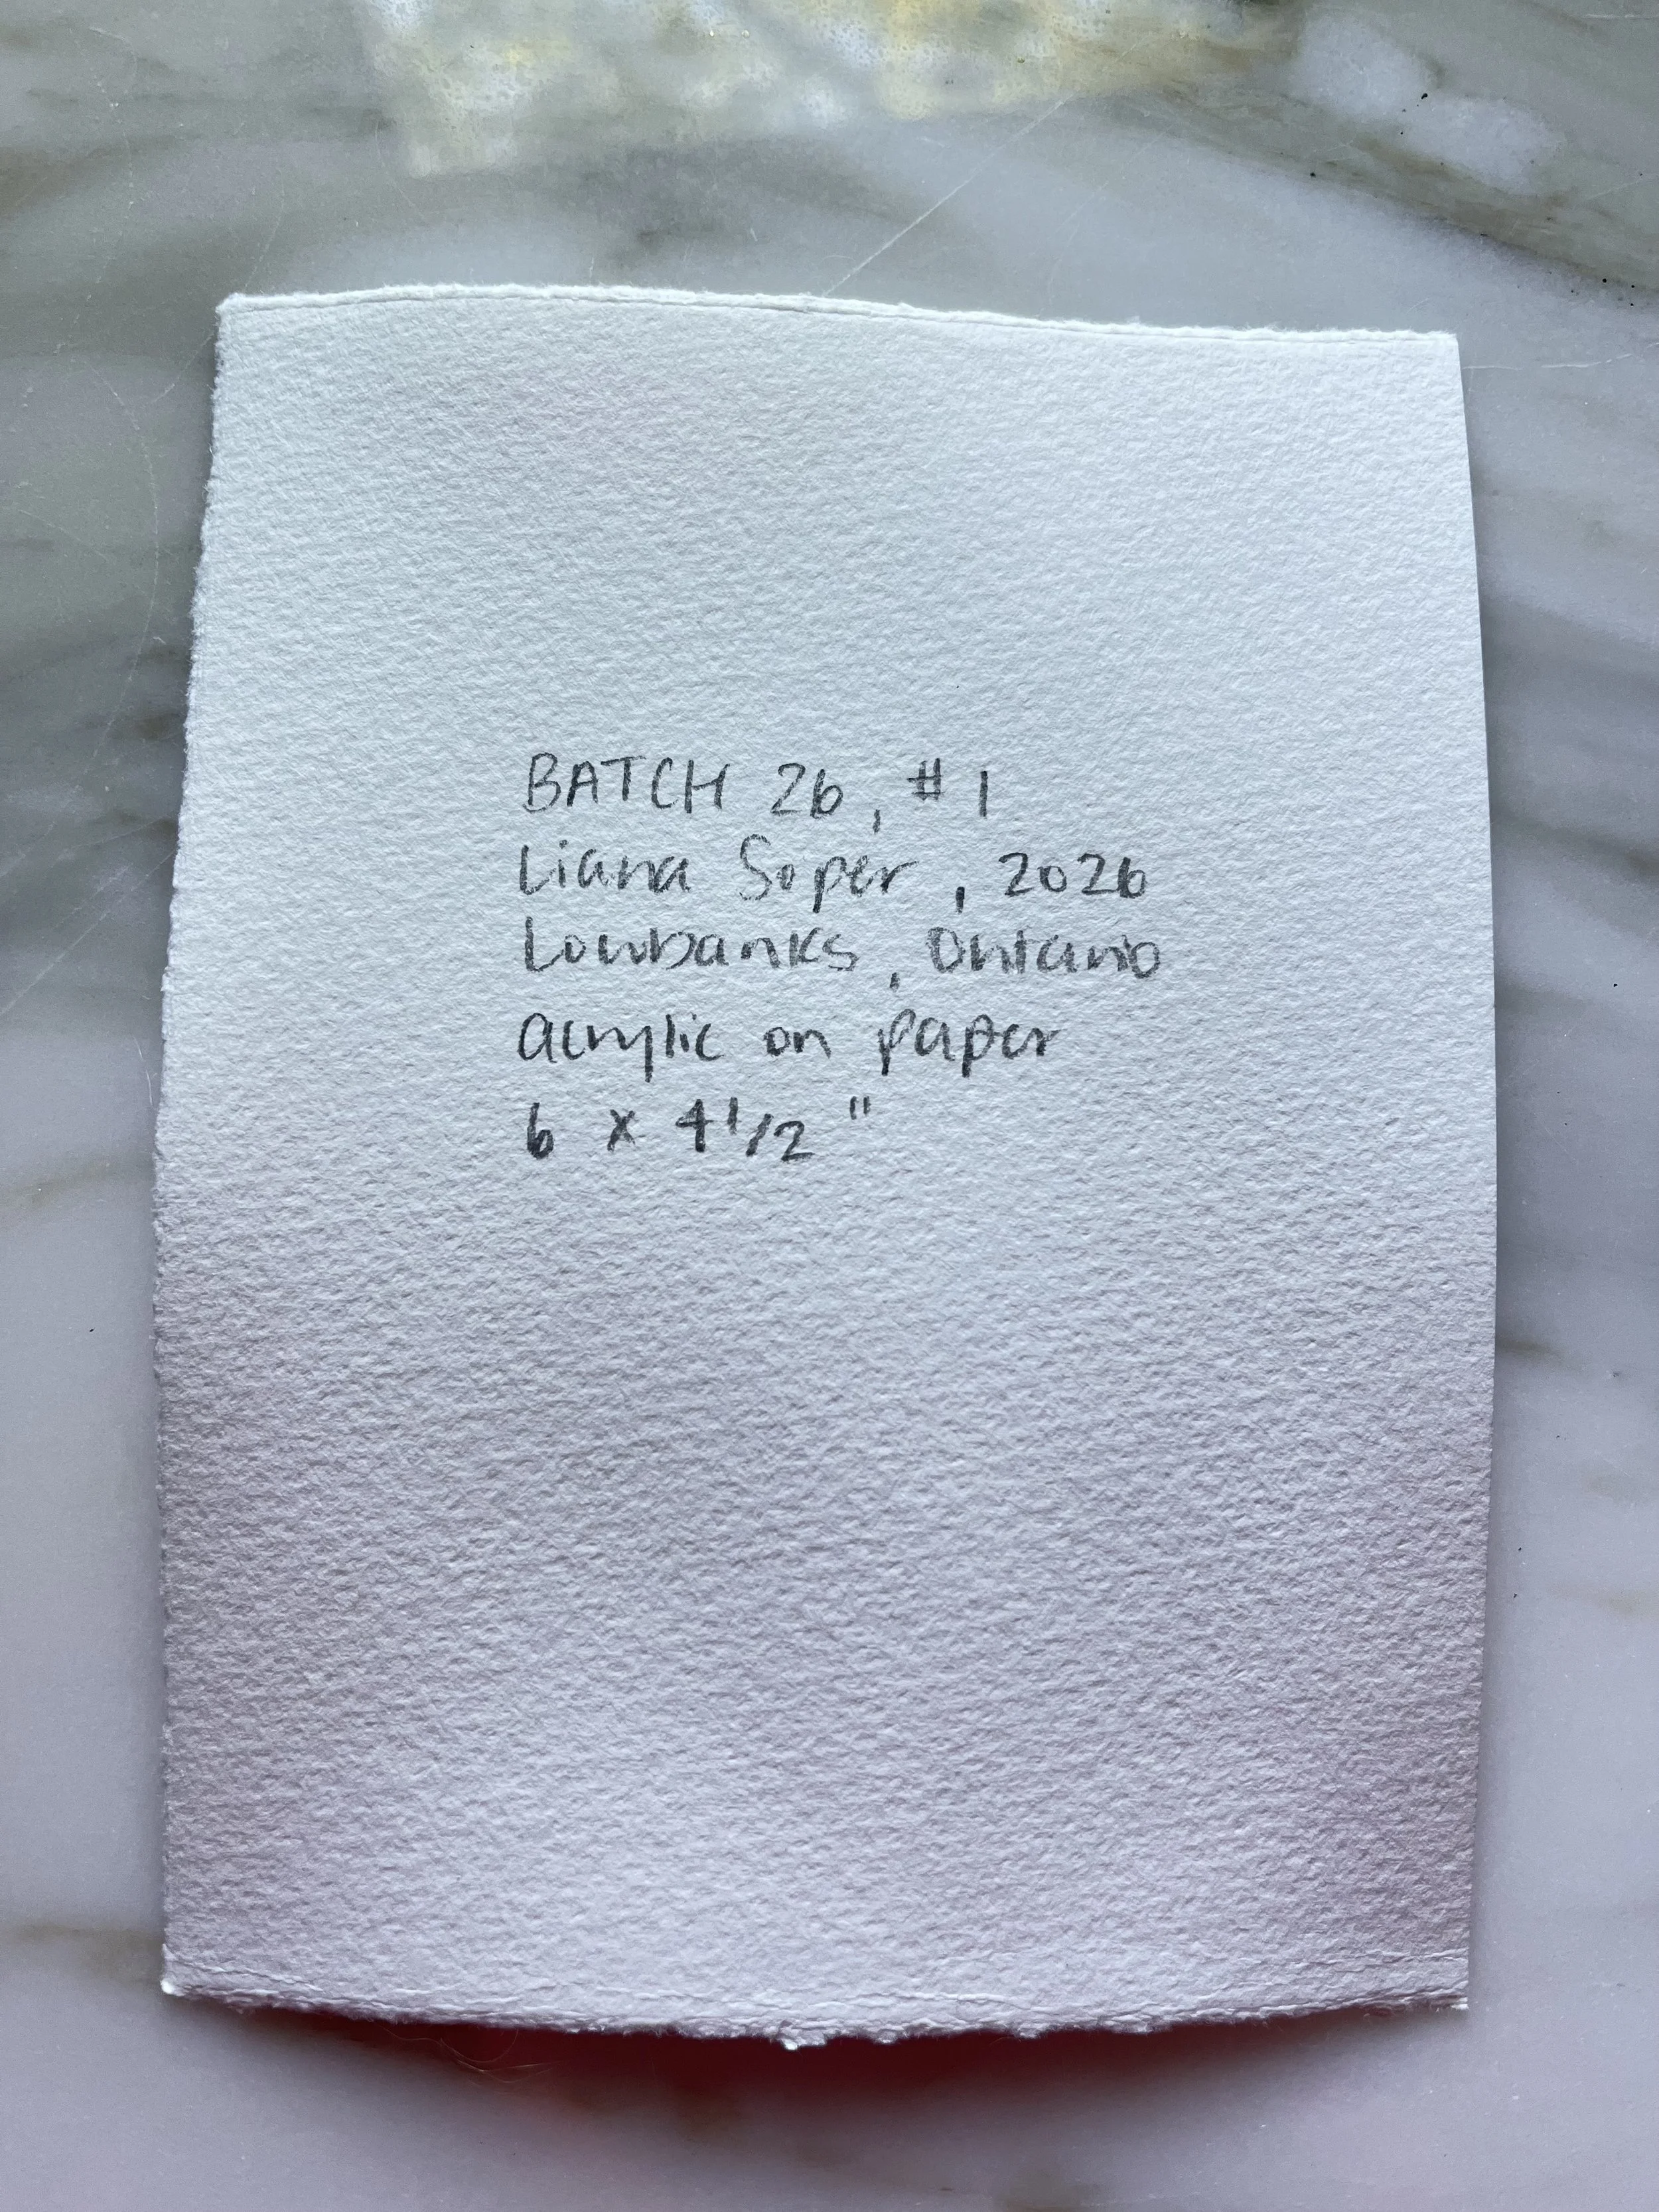 BATCH 26, #1
Liana Soper, 2026
Lowbanks, Ontario
acrylic on paper
6 x 4 1/2"